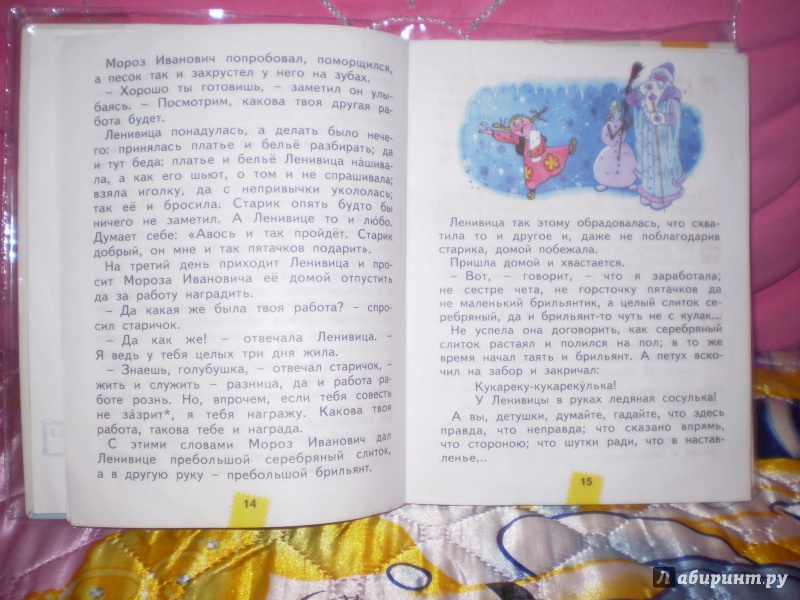 Мороз Иванович попробовал, поморщился,
а песок так и захрустел у него на зубах.
– Хорошо ты готовишь, – заметил он улы-
баясь. – Посмотрим, какова твоя другая ра-
бота будет.
Ленивица понадулась, а делать было нече-
го: принялась платье и бельё разбирать; да
и тут беда: платье и бельё Ленивица на́шива-
ла, а как его шьют, о том и не спрашивала;
взяла иголку, да с непривычки укололась;
так её и бросила. Старик опять будто бы
ничего не заметил. А Ленивице то и лю́бо.
Думает себе: «Авось и так пройдёт. Старик
добрый, он мне и так пятачков подарит».
На третий день приходит Ленивица и про-
сит Мороза Ивановича её домой отпустить
да за работу наградить.
– Да какая же была твоя работа? – спро-
сил старичок.
– Да как же! – отвечала Ленивица. –
Я ведь у тебя целых три дня жила.
– Знаешь, голубушка, – отвечал старичок,
– жить и служить – разница, да и работа ра-
боте рознь. Но, впрочем, если тебя совесть
не за́зрит*, я тебя награжу. Какова твоя
работа, такова тебе и награда.
С этими словами Мороз Иванович дал
Ленивице пребольшой серебряный слиток,
а в другую руку – пребольшой брильянт.
14
Ленивица так этому обрадовалась, что схва-
тила то и другое и, даже не поблагодарив
старика, домой побежала.
Пришла домой и хвастается.
– Вот, – говорит, – что я заработала;
не сестре чета, не горсточку пятачков да
не маленький брильянтик, а целый слиток се-
ребряный, да и брильянт-то чуть не с кулак...
Не успела она договорить, как серебряный
слиток растаял и полился на пол; в то же
время начал таять и брильянт. А петух вско-
чил на забор и закричал:
Кукареку-кукареку́лька!
У Ленивицы в руках ледяная сосулька!
А вы, детушки, думайте, гадайте, что здесь
правда, что неправда; что сказано впрямь,
что стороною; что шутки ради, что в настав-
ленье...
15
Лабиринт.ру